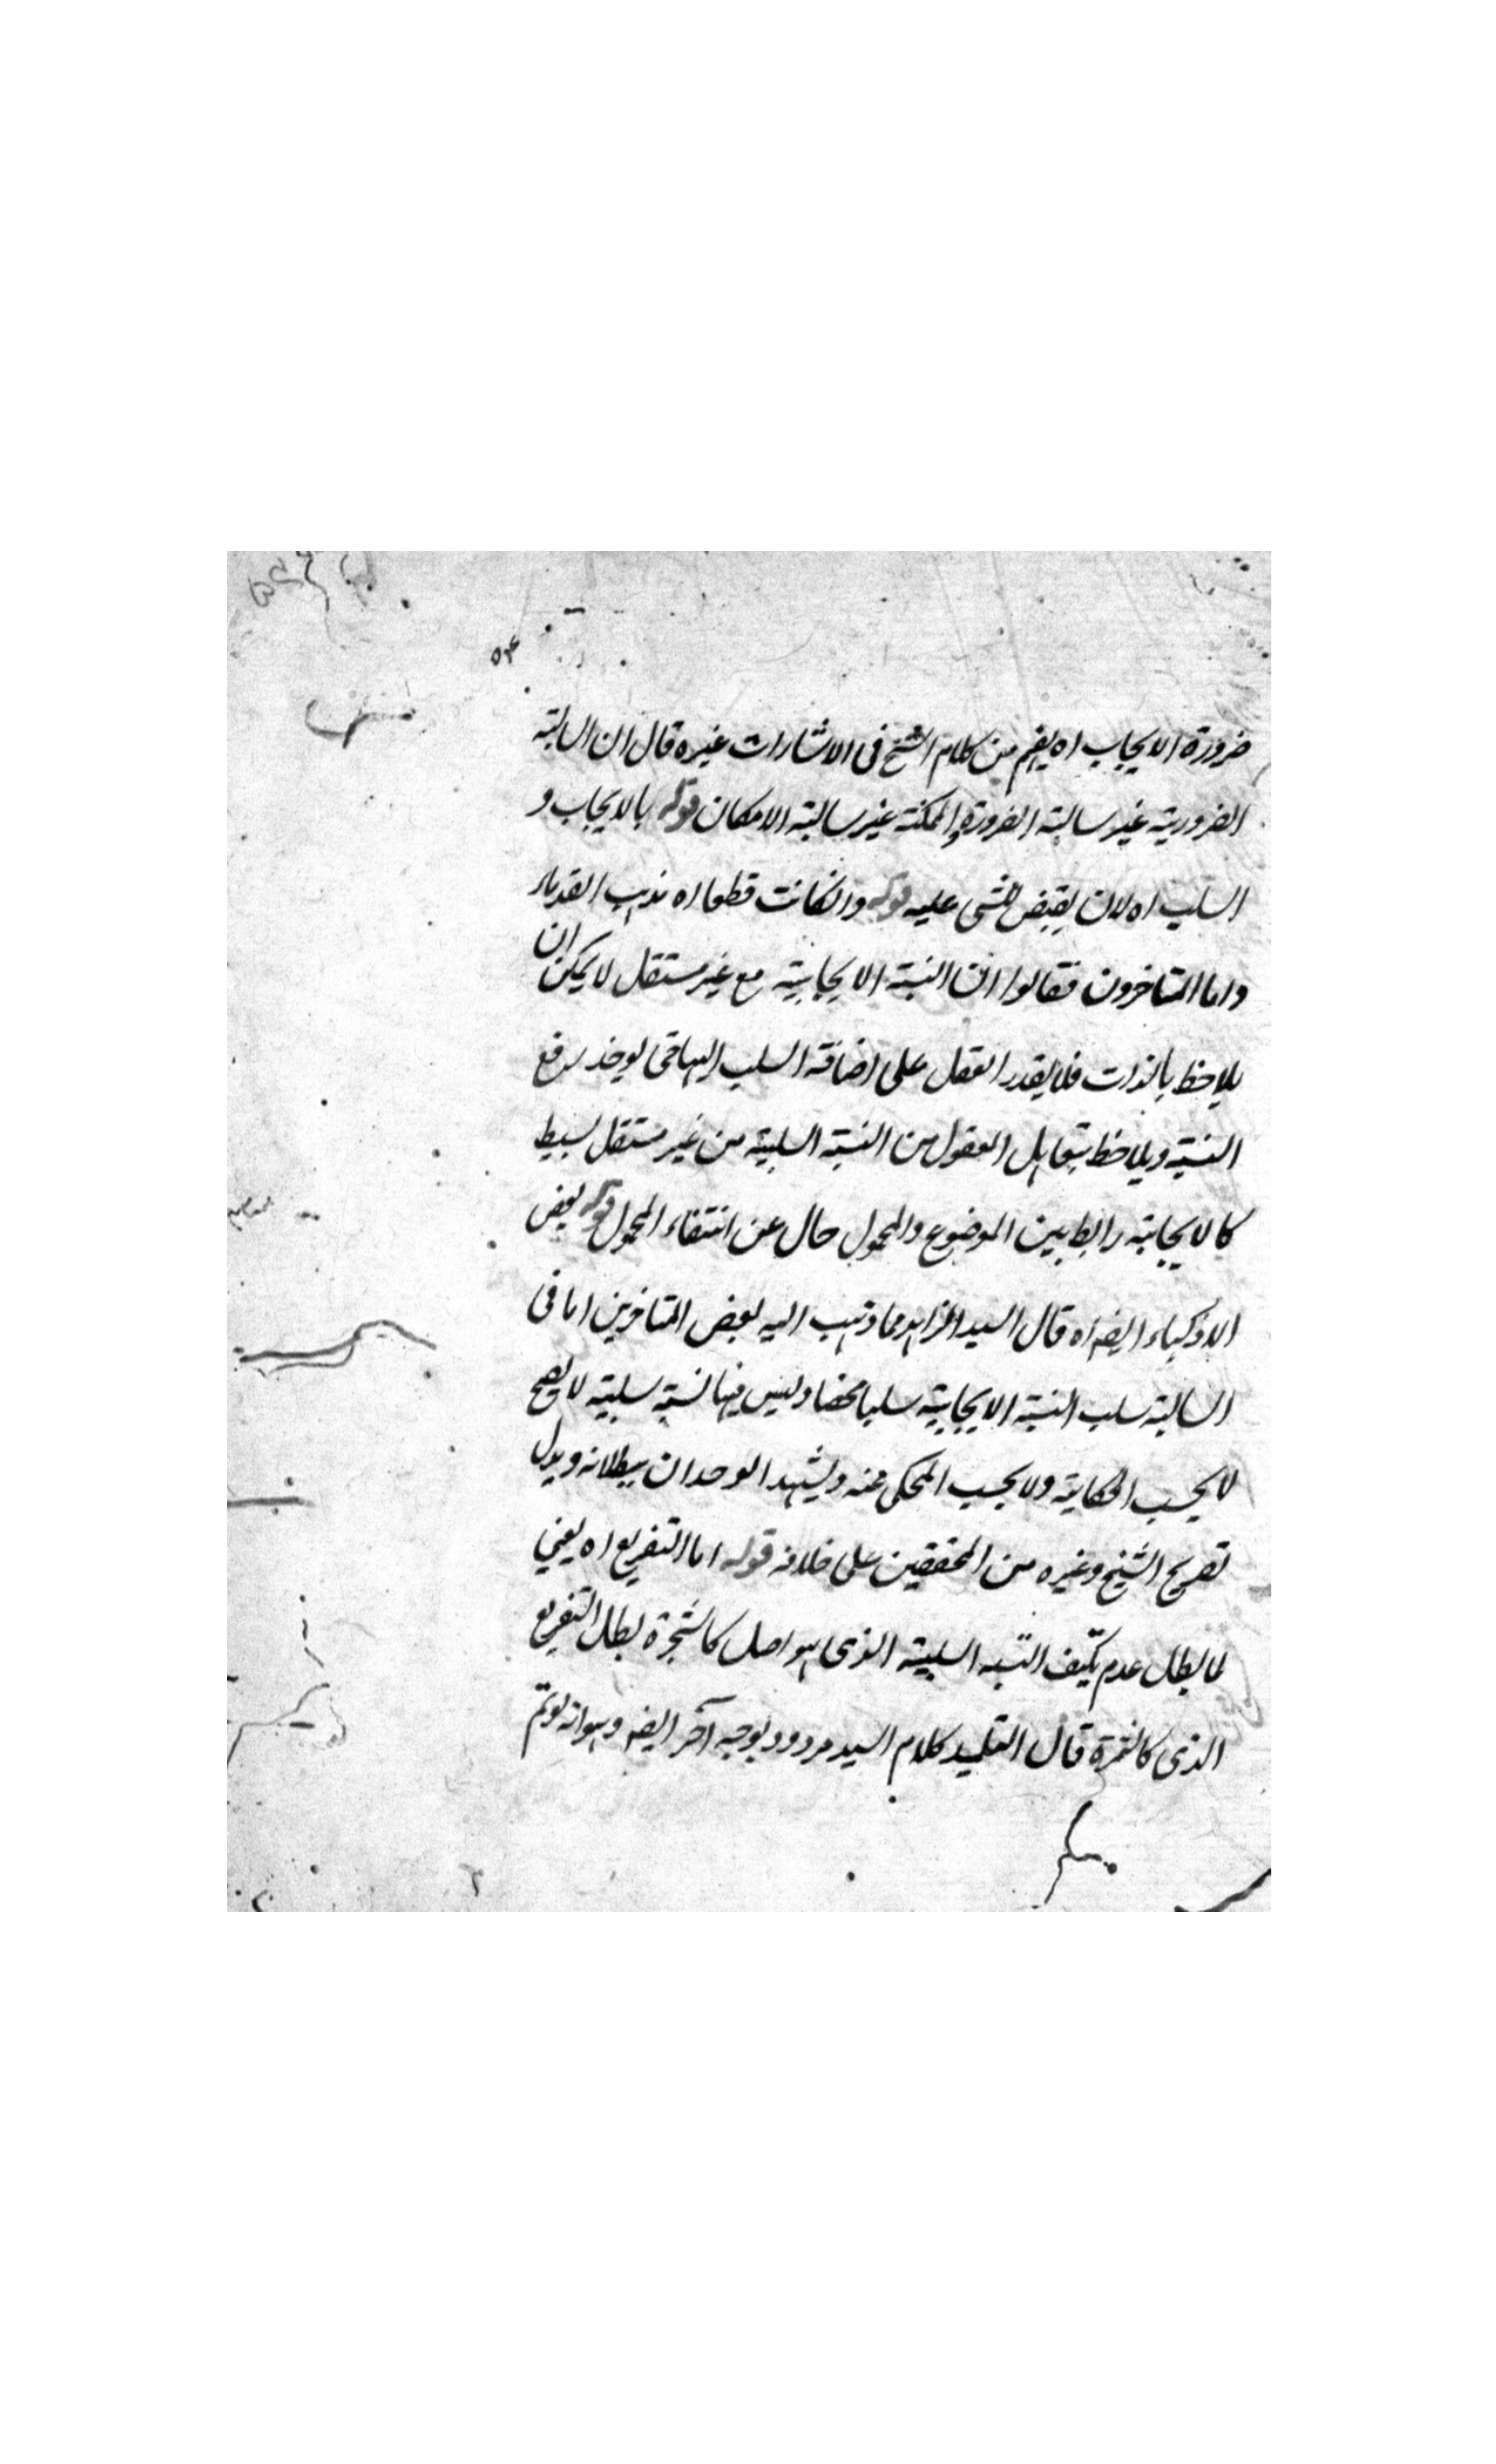 ۵۴
ضرورة الايجاب اه يفهم من كلام الشيخ فى الاشارات غيره قال ان السالبة
الضرورية غير سالبة الضرورة والممكنة غير سالبة الامكان قوله بالايجاب و
السلب اه لان يقبض الشى عليه قوله وانكانت قطعا اه مذهب القدماء
واما المتاخرون فقالوا ان النسبة الايجابية مع غير مستقل لا يمكن ان
يلاحظ بالذات فلا يقدر العقل على اضافة السلب اليها حتى يوخذ رفع
النسبة ويلاحظ المعقول من النسبة السلبية من غير مستقل بسيط
كالايجابية رابط بين الموضوع والمحمول حال عن انتفاء المحمول قوله بعض
الاذكياء ايضه اه قال السيد الزاهد مما ذهب اليه بعض المتاخرين اما فى
السالبة سلب النسبة الايجابية سلبا محضا وليس فيها نسبة سلبية لا يصح
لا بحسب الحكاية ولا بحسب المحكى عنه ويشهد الوجدان ببطلانه ويدل
تصريح الشيخ وغيره من المحققين على خلافه قوله اما التفريع اه يعنى
لما بطل عدم تكيف النسبه السلبية الذى هو اصل كالشجرة بطل التفريع
الذى كالثمرة قال التلميذ كلام السيد مردود بوجه آخر ايضه وهو انه لو تم